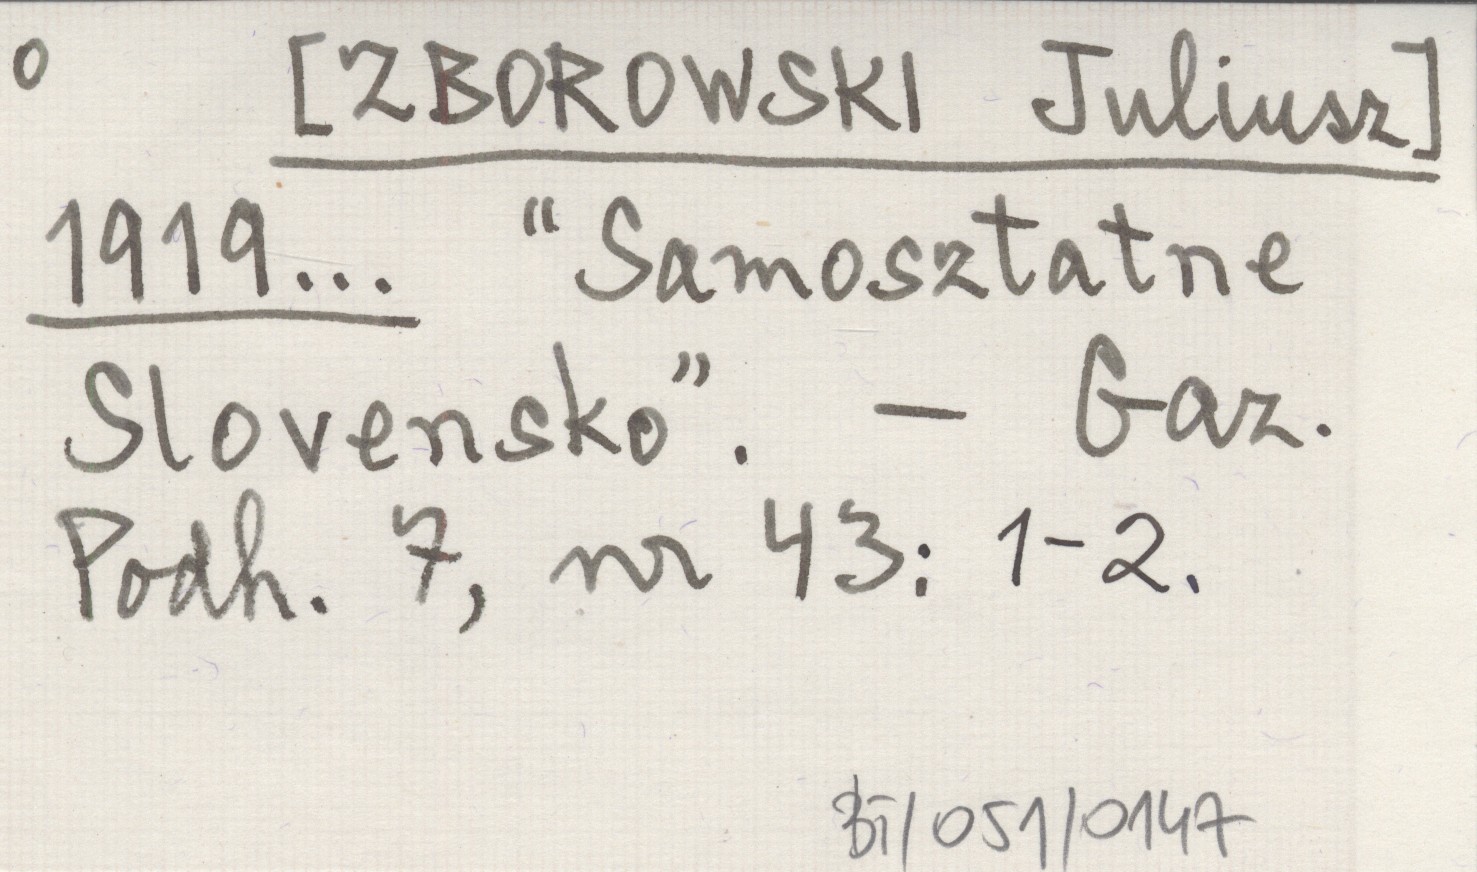 o [ZBOROWSKI Juliusz]
1919... "Samosztatne
Slovensko". — Gaz.
Podh. 7, nr 43: 1-2.
BT/051/0147